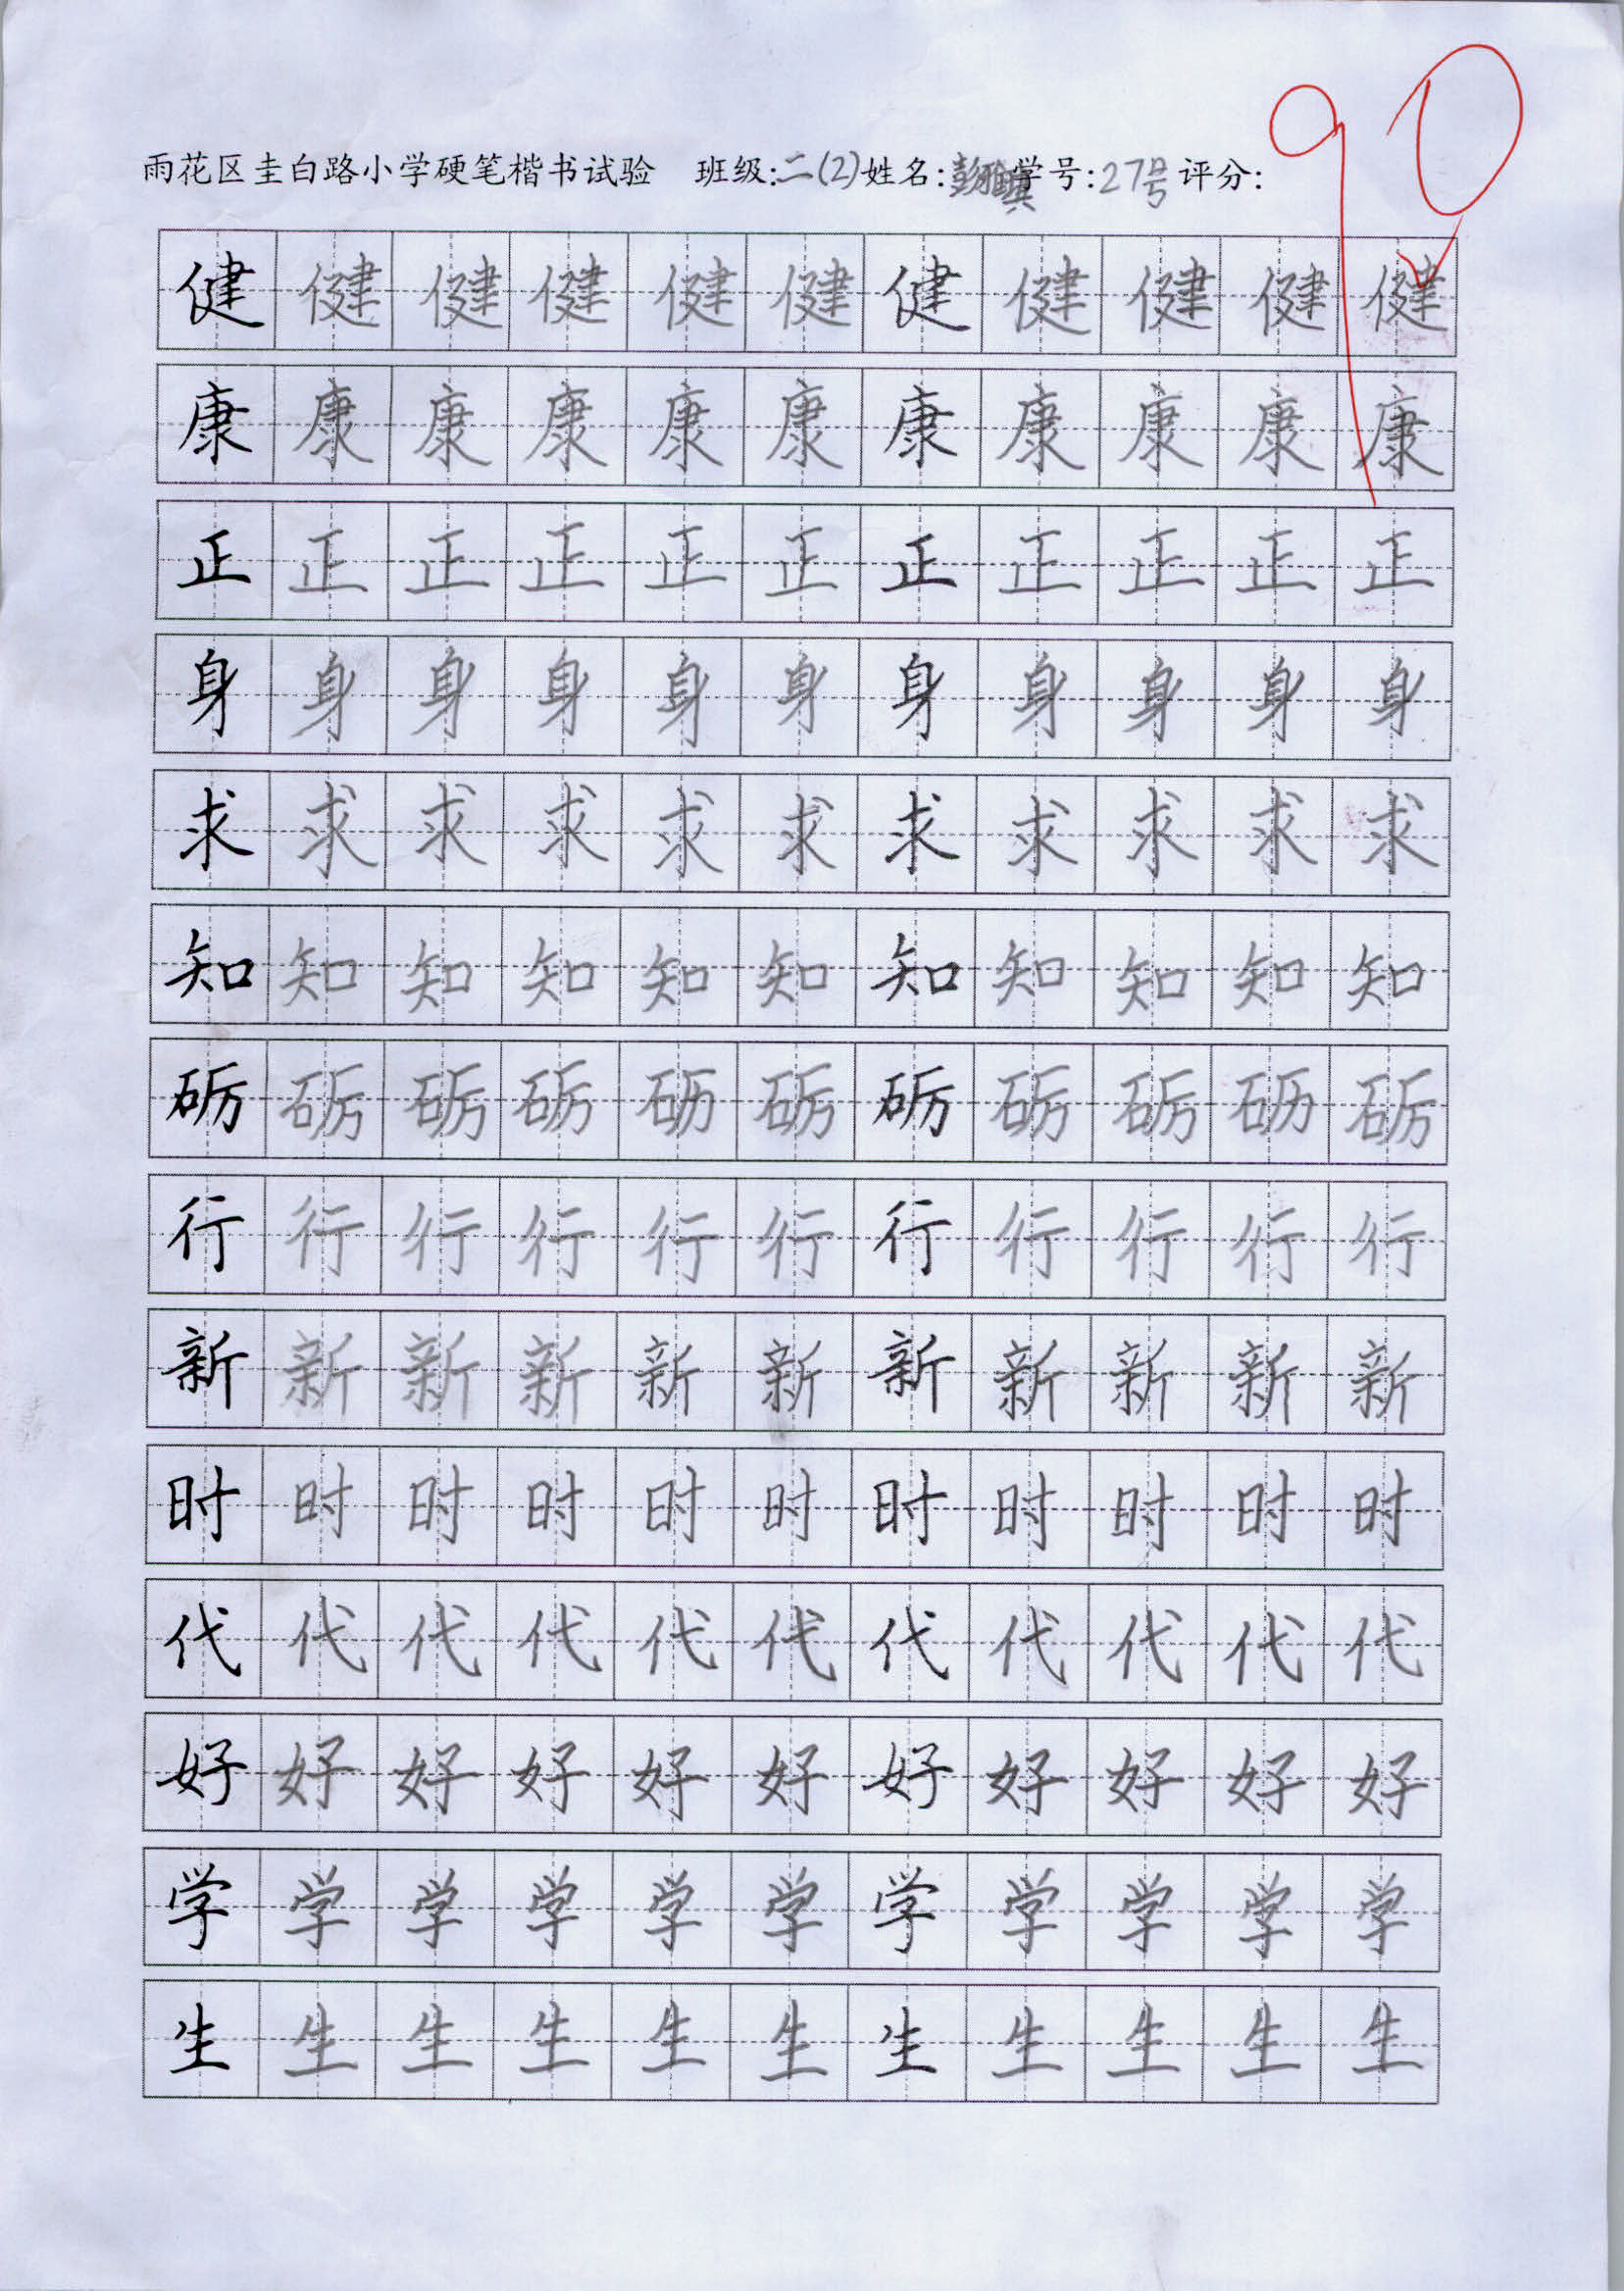 雨花区圭白路小学硬笔楷书试验 班级:二(2)姓名:彭雅 学号:27号 评分:90
健健健健健健健健健健健
康康康康康康康康康康康
正正正正正正正正正正正
身身身身身身身身身身身
求求求求求求求求求求求
知知知知知知知知知知知
砺砺砺砺砺砺砺砺砺砺砺
行行行行行行行行行行行
新新新新新新新新新新新
时时时时时时时时时时时
代代代代代代代代代代代
好好好好好好好好好好好
学学学学学学学学学学学
生生生生生生生生生生生